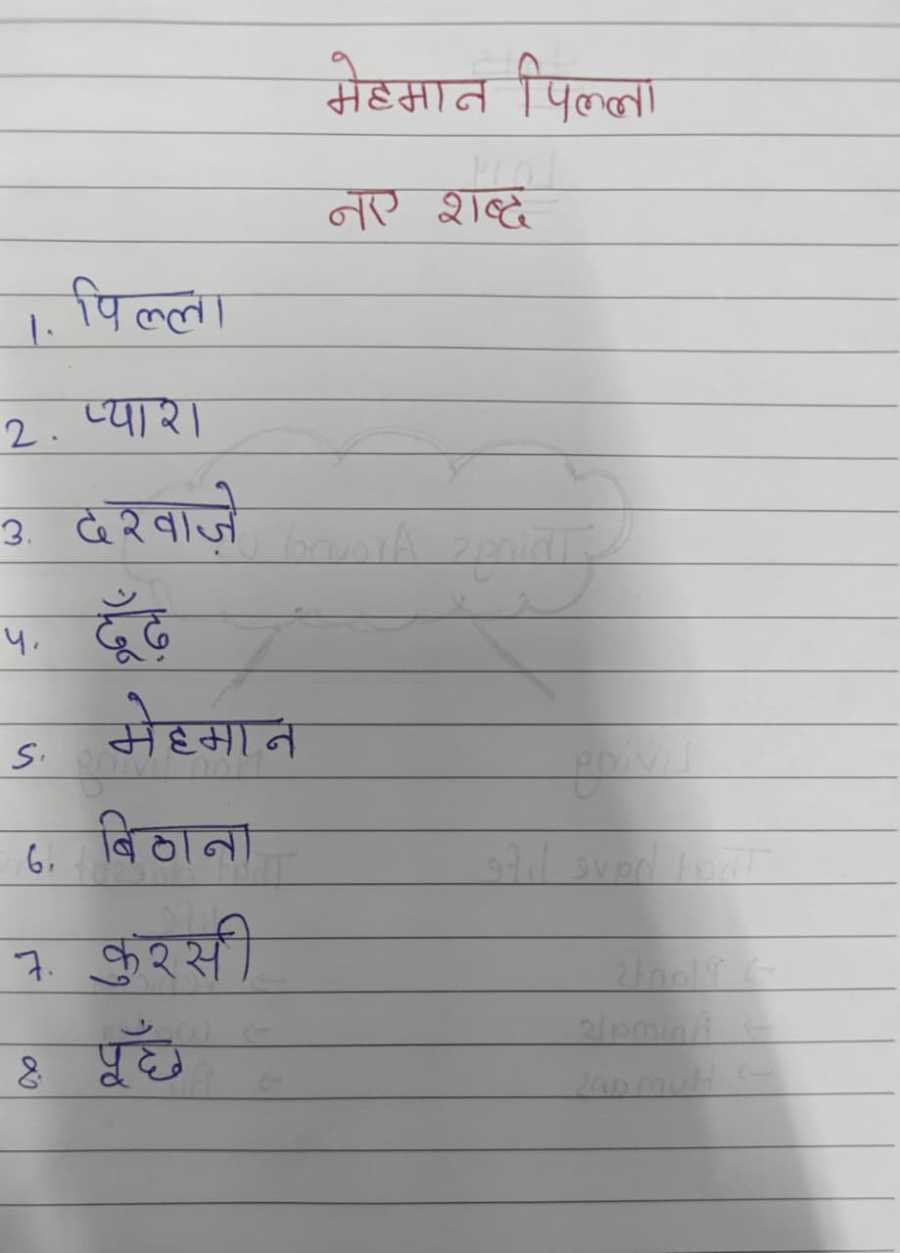 मेहमान पिल्ला
नए शब्द
1. पिल्ला
2. प्यारा
3. दरवाज़े
4. ढूँढ़
5. मेहमान
6. बिठाना
7. कुरसी
8. पूँछ